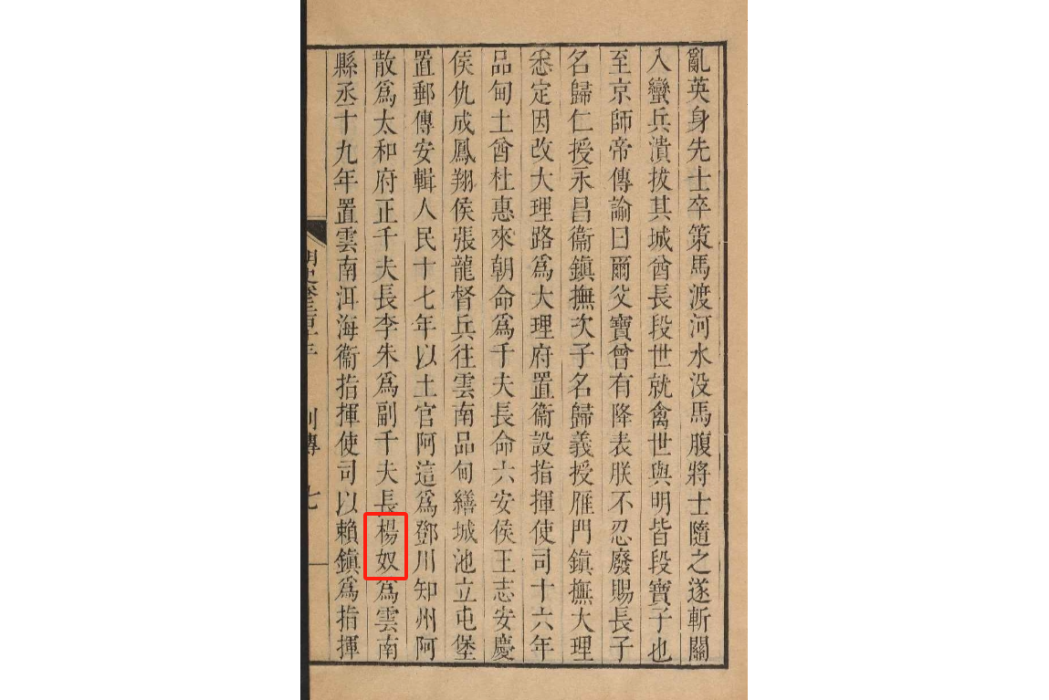 亂英身先士卒策馬渡河水沒馬腹將士隨之遂斬關
入蠻兵潰拔其城酋長段世就禽世與明皆段寶子也
至京師帝傳諭曰爾父寶曾有降表朕不忍廢賜長子
名歸仁授永昌衞鎮撫次子名歸義授雁門鎮撫大理
悉定因改大理路爲大理府置衞設指揮使司十六年
品甸土酋杜惠來朝命爲千夫長命六安侯王志安慶
侯仇成鳳翔侯張龍督兵往雲南品甸繕城池立屯堡
置郵傳安輯人民十七年以土官阿這爲鄧川知州阿
散爲太和府正千夫長李朱爲副千夫長楊奴爲雲南
縣丞十九年置雲南洱海衞指揮使司以賴鎮爲指揮
列傳 七